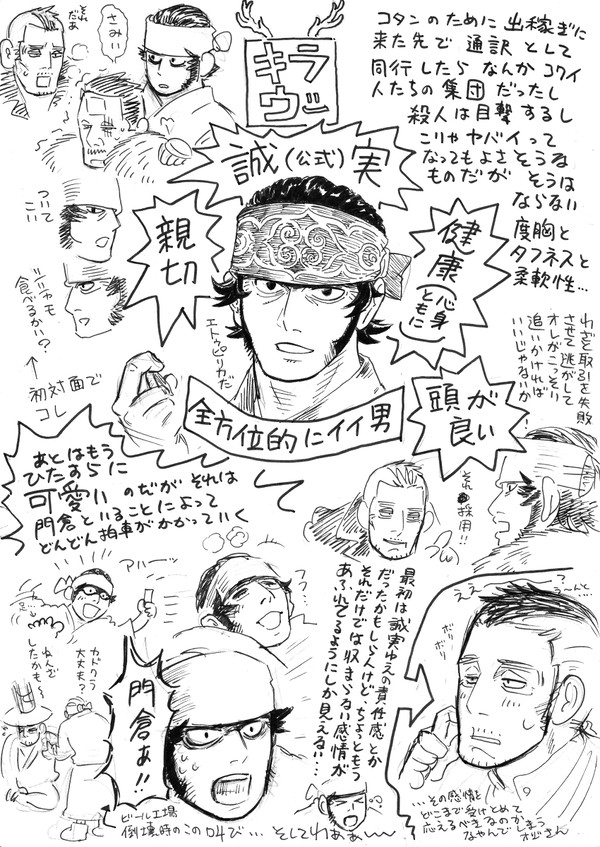 それ
だぁ
さみぃ
キラ
ウㇱ
コタンのために出稼ぎに
来た先で通訳として
同行したらなんかコワイ
人たちの集団だったし
殺人は目撃するし
こりゃヤバイって
なってもよさそうな
ものだがそうは
ならない
度胸と
タフネスと
柔軟性…
誠(公式)実
親切
健康
(心身
ともに)
エトゥピリカだ
全方位的にイイ男
頭が
良い
ついて
こい
食べるかい?
↑
初対面で
コレ
わざと取引を失敗
させて逃がして
オレがこっそり
追いかければ
いいじゃないか
それ採用!!
あとはもう
ひたすらに
可愛いのだがそれは
門倉といることによって
どんどん拍車がかかっていく
アハーッ
フフ…
カドクラ
大丈夫?
ねんざ
したかも〜
門倉ぁ!!
ビール工場
倒壊時のこの叫び…そしてわぁぁ〜
最初は誠実ゆえの責任感とか
だったかもしらんけど、ちょっともう
それだけでは収まらない感情が
あふれてるようにしか見えない…
ええ〜?
う〜んと…
ボリ
ボリ
…その感情を
どこまで受けとめて
応えるべきなのか
なやんでしまう
オジさん